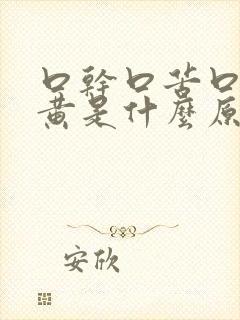 口幹口苦口
黃是什麼原
安欣